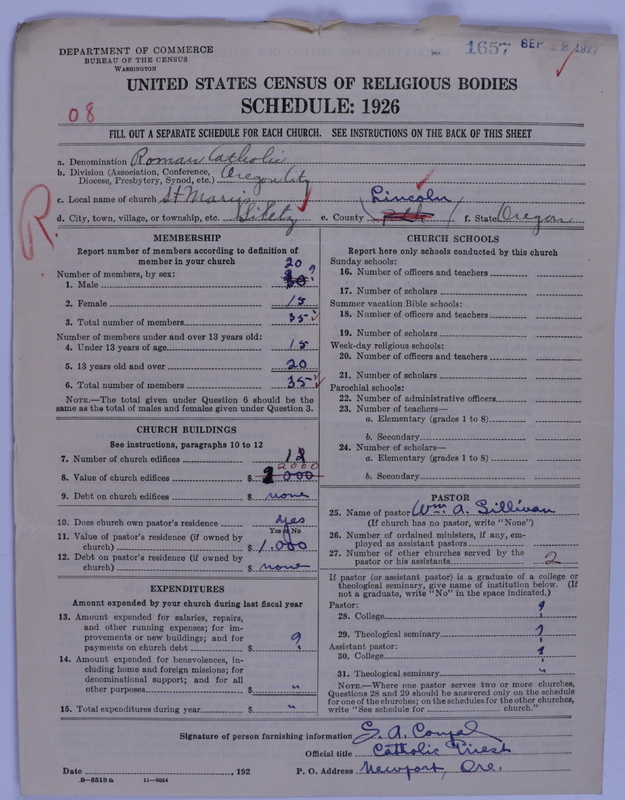 DEPARTMENT OF COMMERCE
BUREAU OF THE CENSUS
WASHINGTON
1657 SEP 12 1927
UNITED STATES CENSUS OF RELIGIOUS BODIES
SCHEDULE: 1926
08
FILL OUT A SEPARATE SCHEDULE FOR EACH CHURCH. SEE INSTRUCTIONS ON THE BACK OF THIS SHEET
a. Denomination Roman Catholic
b. Division (Association, Conference, Diocese, Presbytery, Synod, etc.) Oregon City
c. Local name of church St Marys
Lincoln
d. City, town, village, or township, etc. Siletz e. County f. State Oregon
R.
MEMBERSHIP
Report number of members according to definition of
member in your church
20
Number of members, by sex:
1. Male ?
2. Female 15
3. Total number of members 35
Number of members under and over 13 years old:
4. Under 13 years of age 15
5. 13 years old and over 20
6. Total number of members 35
NOTE.—The total given under Question 6 should be
same as the total of males and females given under Question 3.
CHURCH BUILDINGS
See instructions, paragraphs 10 to 12
7. Number of church edifices 1
2000
8. Value of church edifices $ 000
9. Debt on church edifices $ none
10. Does church own pastor's residence yes
Yes or No
11. Value of pastor's residence (if owned by
church) $ 1.000
12. Debt on pastor's residence (if owned by
church) $ none
EXPENDITURES
Amount expended by your church during last fiscal year
13. Amount expended for salaries, repairs,
and other running expenses; for im-
provements or new buildings; and for
payments on church debt $ ?
14. Amount expended for benevolences, in-
cluding home and foreign missions; for
denominational support; and for all
other purposes $ "
15. Total expenditures during year $ "
CHURCH SCHOOLS
Report here only schools conducted by this church
Sunday schools:
16. Number of officers and teachers
17. Number of scholars
Summer vacation Bible schools:
18. Number of officers and teachers
19. Number of scholars
Week-day religious schools:
20. Number of officers and teachers
21. Number of scholars
Parochial schools:
22. Number of administrative officers
23. Number of teachers—
a. Elementary (grades 1 to 8)
b. Secondary
24. Number of scholars—
a. Elementary (grades 1 to 8)
b. Secondary
PASTOR
25. Name of pastor Wm. A. Sillivan
(If church has no pastor, write "None")
26. Number of ordained ministers, if any, em-
ployed as assistant pastors
27. Number of other churches served by the
pastor or his assistants 2
If pastor (or assistant pastor) is a graduate of a college or
theological seminary, give name of institution below. (If
not a graduate, write "No" in the space indicated.)
Pastor:
28. College ?
29. Theological seminary ?
Assistant pastor:
30. College ?
31. Theological seminary "
NOTE.—Where one pastor serves two or more churches,
Questions 28 and 29 should be answered only on the schedule
for one of the churches; on the schedules for the other churches,
write "See schedule for church."
Signature of person furnishing information
Official title Catholic Priest
Date , 192 P. O. Address Newport, Ore.
8—5518 a 11—4664